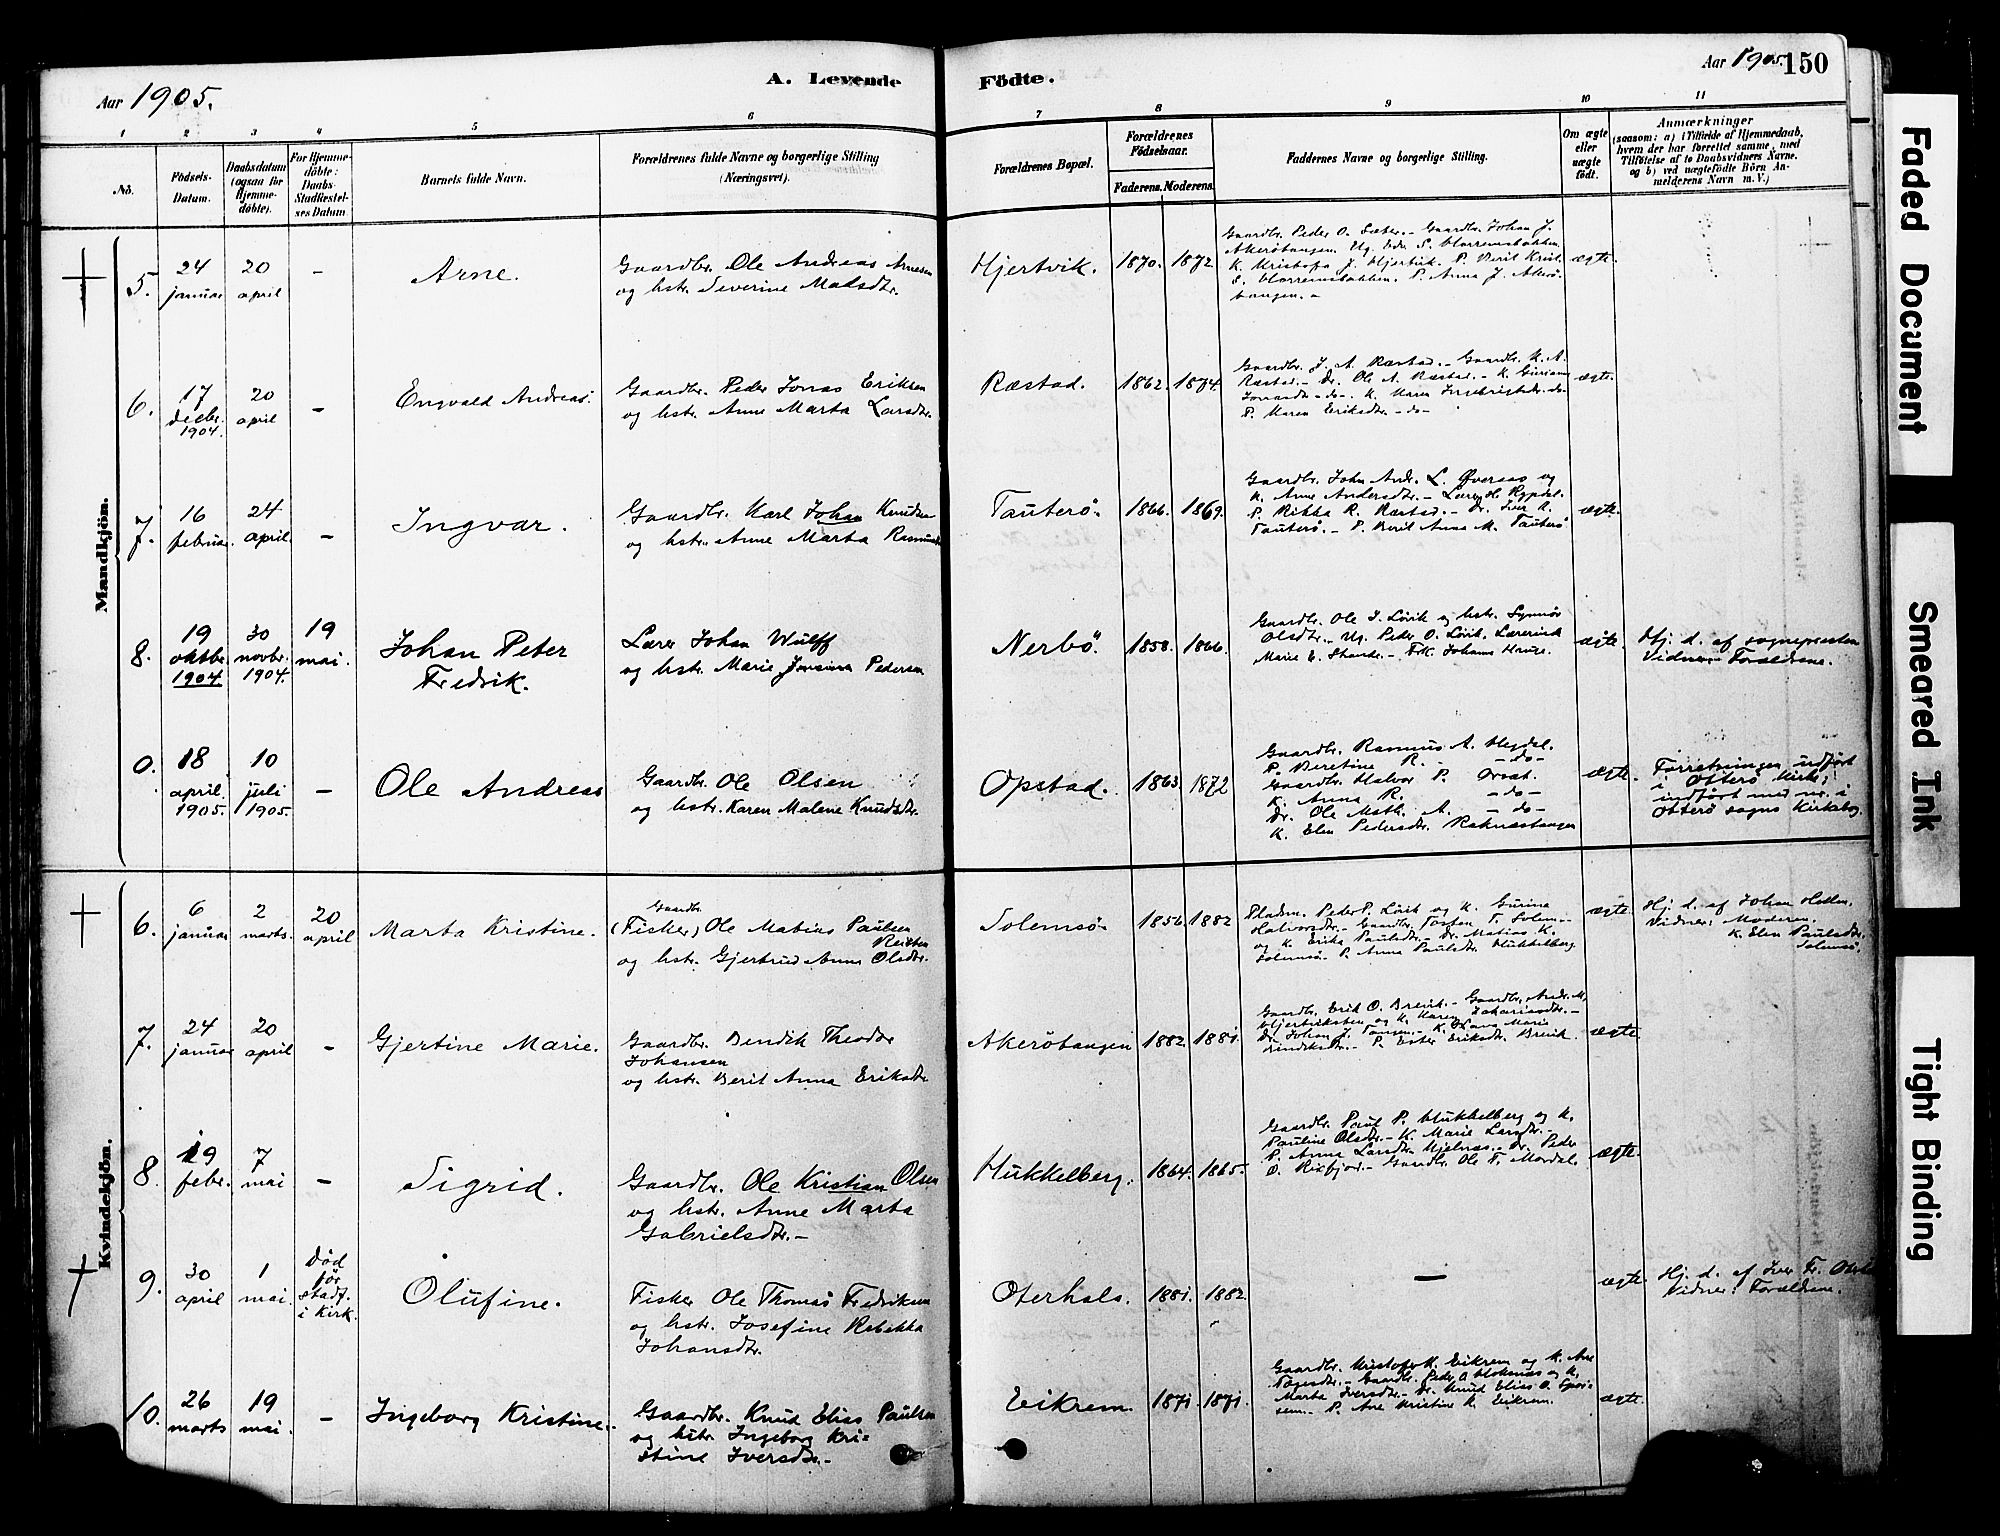 Aar 1905.
A. Levende
Födte.
Aar 1905. 150
1 2 3 4 5 6 7 8 9 10 11
No.
Födsels-
Datum.
Daabsdatum
(ogsaa for
Hjemme-
döbte).
For Hjemme-
döbte:
Daabs-
Stadfæstel-
ses Datum.
Barnets fulde Navn.
Forældrenes fulde Navne og borgerlige Stilling
(Næringsvei).
Forældrenes Bopæl.
Forældrenes
Födselsaar.
Faderens. Moderens.
Faddernes Navne og borgerlige Stilling.
Om ægte
eller
uægte
födt.
Anmærkninger
(saasom: a) i Tilfælde af Hjemmedaab,
hvem der har forrettet samme, med
Tilföielse af to Daabsvidners Navne,
og b) ved uægtefödte Börn An-
melderens Navn m. V.)
Mandkjön.
5.
24
januar
20
april
-
Arne.
Gaardbr. Ole Andreas Arnesen
og hstr. Severine Matsdtr.
Hjertvik.
1870. 1872.
Gaardbr. Peder O. Sæter. - Gaardbr. Johan J.
Akeröbangen. Ug.
K. Kristofa J. Hjertvik. P. Berit Krist.
P. Anna J. Akerö-
bangen. -
ægte.
6.
17
decbr.
1904.
20
april
-
Engvald Andreas.
Gaardbr. Peder Jonas Eriksen
og hstr. Anne Marta Larsdtr.
Ræstad.
1862. 1874.
Gaardbr. J. A. Ræstad. - Gaardbr. K. A.
Ræstad. - Dr. Ole A. Ræstad. - K.
-do-. K. Maren Ingebrigtsdtr. -do-
P. Maren Eriksdtr. -do-
ægte.
7.
16
februar.
24
april.
-
Ingvar.
Gaardbr. Karl Johan Knudsen
og hstr. Anne Marta Rasmusdtr
Tauterö.
1866. 1869.
Gaardbr. John Andr. L. Översås og
K. Anne Andersdtr. - Lærer Rypdal.
P. Rikka R. Ræstad. - Dr. Iver K.
Tauterö. - P. Berit Anna M. Tauterö
ægte.
8.
19
oktbr.
1904
30
novbr.
1904.
19
mai.
Johan Peter
Fredrik.
Lærer Johan Wulff
og hstr. Marie Jonsina Pedersen
Nerbö.
1858. 1866.
Gaardbr. Ole I. Lövik og hstr. Synnöv
Olsdtr. - Ug. Peder O. Lövik. Lærerinde
Marie E. Strande. - Frk. Johanne
ægte.
Hj. d. af sognepresten
Vidner: Forældrene.
0.
18
april
1905.
10
juli
1905.
-
Ole Andreas
Gaardbr. Ole Olsen
og hstr. Karen Malene Knudsdtr.
Opstad.
1863. 1872
Gaardbr. Rasmus A.
P. Beretine R. -do-
Gaardbr. Halvor P.
K. Anna R. -do-
Dr. Ole Math. A. -do-
K. Elen Pedersdtr. Raknestangen
ægte.
Forretningen udfört
i Otterö kirke;
indfört med nr. i
Otterö sogns Kirkebog.
Kvindekjön.
6.
6
januar
2
marts.
20
april
Marta Kristine.
Gaardbr.
(Fisker) Ole Matias Paulsen
og hstr. Gjertrud Anna Olsdtr.
Solemsö.
1856. 1882
Pladsm. Peder P. Lövik og K. Gurine
Halvorsdtr. - Gaardbr. Tosten T. Solem-
og K. Erika Paulsdtr. - Dr. Matias K.
Solemsö. P. Anna Paulsdtr. Hukkelberg
ægte.
Hj. d. af Johan
Vidner: Moderen.
K. Elen Paulsdtr.
Solemsö.
7.
24
januar
20
april
-
Gjertine Marie.
Gaardbr. Bendik Theodor
Johansen
og hstr. Berit Anna Eriksdtr
Akeröbangen
1882. 1881.
Gaardbr. Erik O. Breivik. - Gaardbr. Andr. M.
og K. Karen Zakariasdtr. -
Dr. Johan J. - K. Marie
- P. Ester Eriksdtr. Breivik.
ægte.
8.
19
febr.
7
mai
-
Sigrid.
Gaardbr. Ole Kristian Olsen
og hstr. Anne Marta
Gabrielsdtr. -
Hukkelberg.
1864. 1865.
Gaardbr. Paul P. Hukkelberg og K.
Pauline Olsdtr. - K. Marie Larsdtr. -
P. Anna Larsdtr. Hjelnæs. - Dr. Peder
O. - Gaardbr. Ole T. Mordal.
ægte.
9.
30
april
1
mai.
Död
för
stadf.
i kirk.
Olufine.
Fisker Ole Thomas Fredriksen
og hstr. Josefine Rebekka
Johansdtr.
Oterhals.
1881. 1882.
-
ægte.
Hj. d. af Iver Fr.
Vidner: Forældrene.
10.
26
marts
19
mai.
-
Ingeborg Kristine.
Gaardbr. Knud Elias Paulsen
og hstr. Ingeborg Kri-
stine Iversdtr. -
Eikrem.
1871. 1871.
Gaardbr. Kristofer K. Eikrem og K. Ane
- Gaardbr. Peder og K.
Marta Iversdtr. - Dr. Knud Elias O.
- P. Ane Kristine K. Eikrem.
ægte.
Faded Document
Smeared Ink
Tight Binding